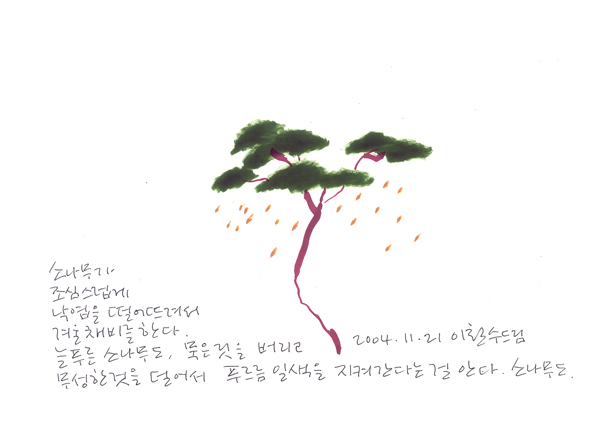 소나무가
조심스럽게
낙엽을 떨어뜨려서
겨울채비를한다.
늘푸른 소나무도, 묵은잎을 버리고
무성한것을 덜어서 푸르름 일색을 지켜간다는걸 안다. 소나무도.
2004.11.21 이철수드림